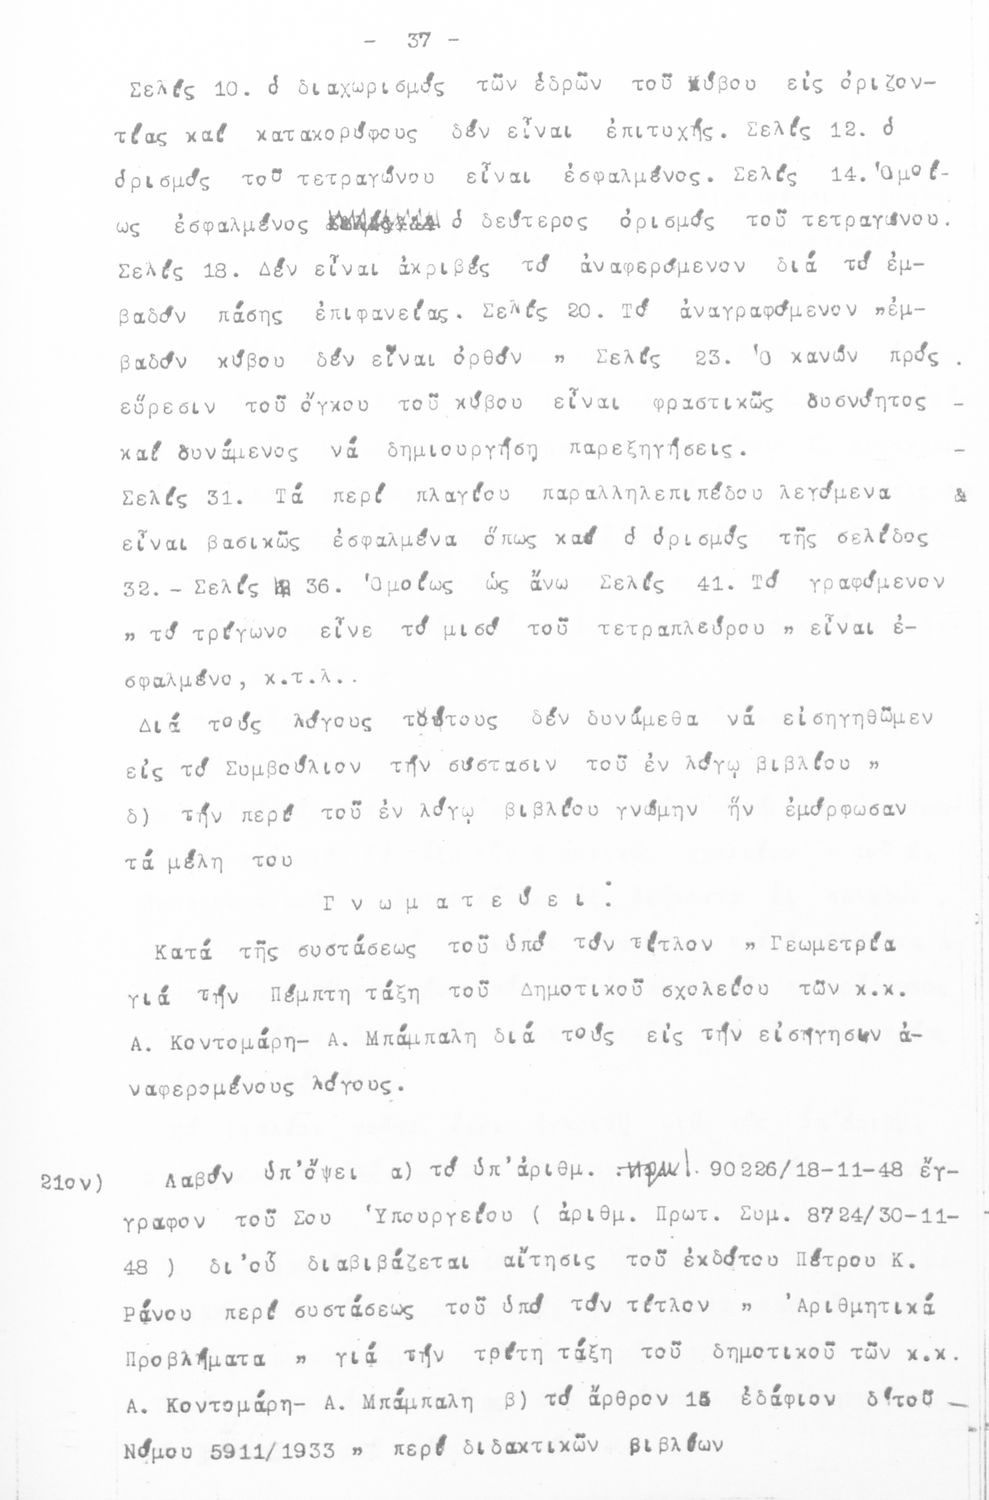 - 37 -
Σελίς 10. ὁ διαχωρισμός τῶν ἑδρῶν τοῦ κύβου εἰς ὁριζον-
τίας καί κατακορύφους δέν εἶναι ἐπιτυχής. Σελίς 12. ὁ
ὁρισμός τοῦ τετραγώνου εἶναι ἐσφαλμένος. Σελίς 14. Ὁμοί-
ως ἐσφαλμένος ὁ δεύτερος ὁρισμός τοῦ τετραγώνου.
Σελίς 18. Δέν εἶναι ἀκριβές τό ἀναφερόμενον διά τό ἐμ-
βαδόν πάσης ἐπιφανείας. Σελίς 20. Τό ἀναγραφόμενον „ἐμ-
βαδόν κύβου δέν εἶναι ὀρθόν „ Σελίς 23. Ὁ κανών πρός
εὕρεσιν τοῦ ὄγκου τοῦ κύβου εἶναι φραστικῶς δυσνόητος
καί δυνάμενος νά δημιουργήσῃ παρεξηγήσεις.
Σελίς 31. Τά περί πλαγίου παραλληλεπιπέδου λεγόμενα &
εἶναι βασικῶς ἐσφαλμένα ὅπως καί ὁ ὁρισμός τῆς σελίδος
32. - Σελίς 36. Ὁμοίως ὡς ἄνω Σελίς 41. Τό γραφόμενον
„ τό τρίγωνο εἶνε τό μισό τοῦ τετραπλεύρου „ εἶναι ἐ-
σφαλμένο, κ.τ.λ..
Διά τούς λόγους τούτους δέν δυνάμεθα νά εἰσηγηθῶμεν
εἰς τό Συμβούλιον τήν σύστασιν τοῦ ἐν λόγῳ βιβλίου „
δ) τήν περί τοῦ ἐν λόγῳ βιβλίου γνώμην ἥν ἐμόρφωσαν
τά μέλη του
Γ ν ω μ α τ ε ύ ε ι :
Κατά τῆς συστάσεως τοῦ ὑπό τόν τίτλον „ Γεωμετρία
γιά τήν Πέμπτη τάξη τοῦ Δημοτικοῦ σχολείου τῶν κ.κ.
Α. Κοντομάρη- Α. Μπάμπαλη διά τούς εἰς τήν εἰσήγησιν ἀ-
ναφερομένους λόγους.
21ον) Λαβόν ὑπ'ὄψει α) τό ὑπ'ἀριθμ. 90226/18-11-48 ἔγ-
γραφον τοῦ Σου Ὑπουργείου ( ἀριθμ. Πρωτ. Συμ. 8724/30-11-
48 ) δι'οὗ διαβιβάζεται αἴτησις τοῦ ἐκδότου Πέτρου Κ.
Ράνου περί συστάσεως τοῦ ὑπό τόν τίτλον „ Ἀριθμητικά
Προβλήματα „ γιά τήν τρίτη τάξη τοῦ δημοτικοῦ τῶν κ.κ.
Α. Κοντομάρη- Α. Μπάμπαλη β) τό ἄρθρον ἐδάφιον δ'τοῦ
Νόμου 5911/1933 „ περί διδακτικῶν βιβλίων